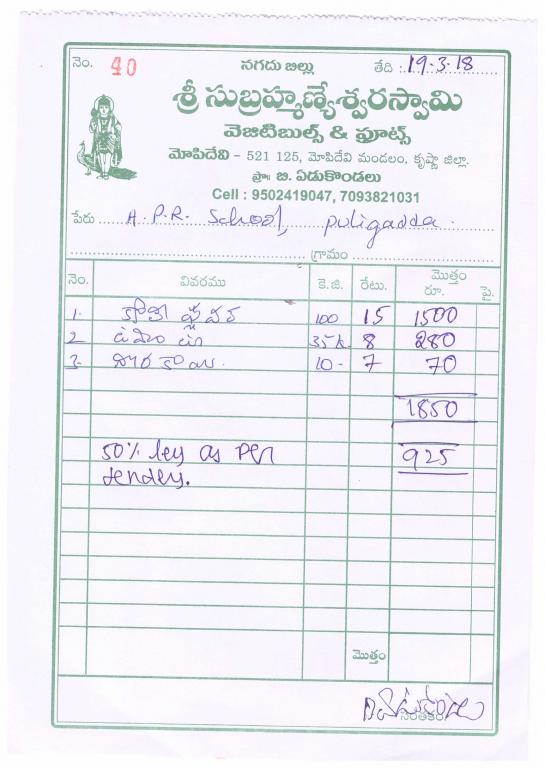 నెం. 40 నగదు బిల్లు తేది : 19-3-18
శ్రీ సుబ్రహ్మణ్యేశ్వరస్వామి
వెజిటిబుల్స్ & ఫ్రూట్స్
మోపిదేవి - 521 125, మోపిదేవి మండలం, కృష్ణా జిల్లా.
ప్రొ॥ బి. ఏడుకొండలు
Cell : 9502419047, 7093821031
పేరు A.P.R. School, puligadda.
గ్రామం
నెం. వివరము కె.జి. రేటు. మొత్తం రూ. పై.
1. 100 15 1500
2 35k 8 280
3- 10- 7 70
1850
50% ley as per 925
tender.
మొత్తం
సంతకం